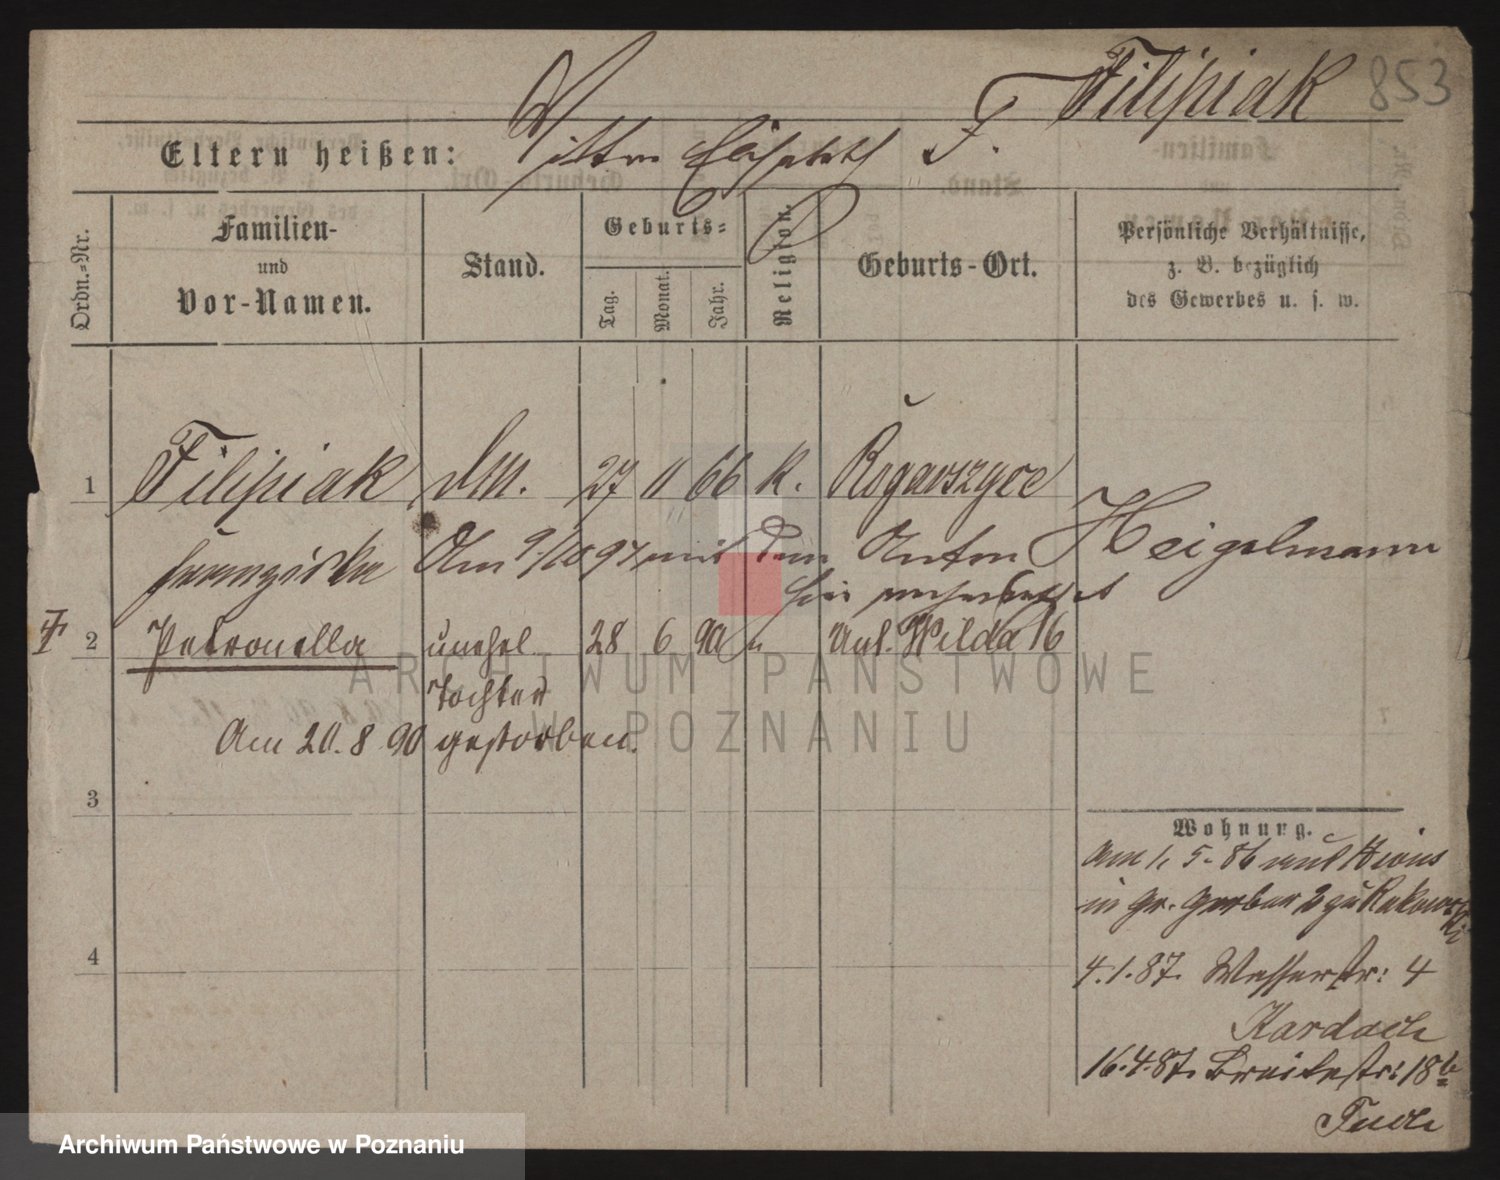 Filipiak 853
Eltern heißen: Mutter Elisabeth F.
Ordn.-Nr.
Familien-
und
Vor-Namen.
Stand.
Geburts-
Tag.
Monat.
Jahr.
Religion.
Geburts-Ort.
Persönliche Verhältnisse,
z. B. bezüglich
des Gewerbes u. s. w.
1 Filipiak dM. 27 11 66 K. Rogaszyce
Franziska Am 9./10 97 mit dem Anton Heigelmann
hier verheirathet
2 Petronella unehel. 28 6 90 " Unt. Wilda 16
Tochter
Am 20. 8. 90 gestorben.
3
Wohnung.
Am 1. 5. 86 aus
in gr. Gerber 2 zu Rakowski
4
4.1.87. Wasserstr: 4
Kardach
16.4.87. Breitestr: 18b
Tuch
ARCHIWUM PAŃSTWOWE
W POZNANIU
Archiwum Państwowe w Poznaniu